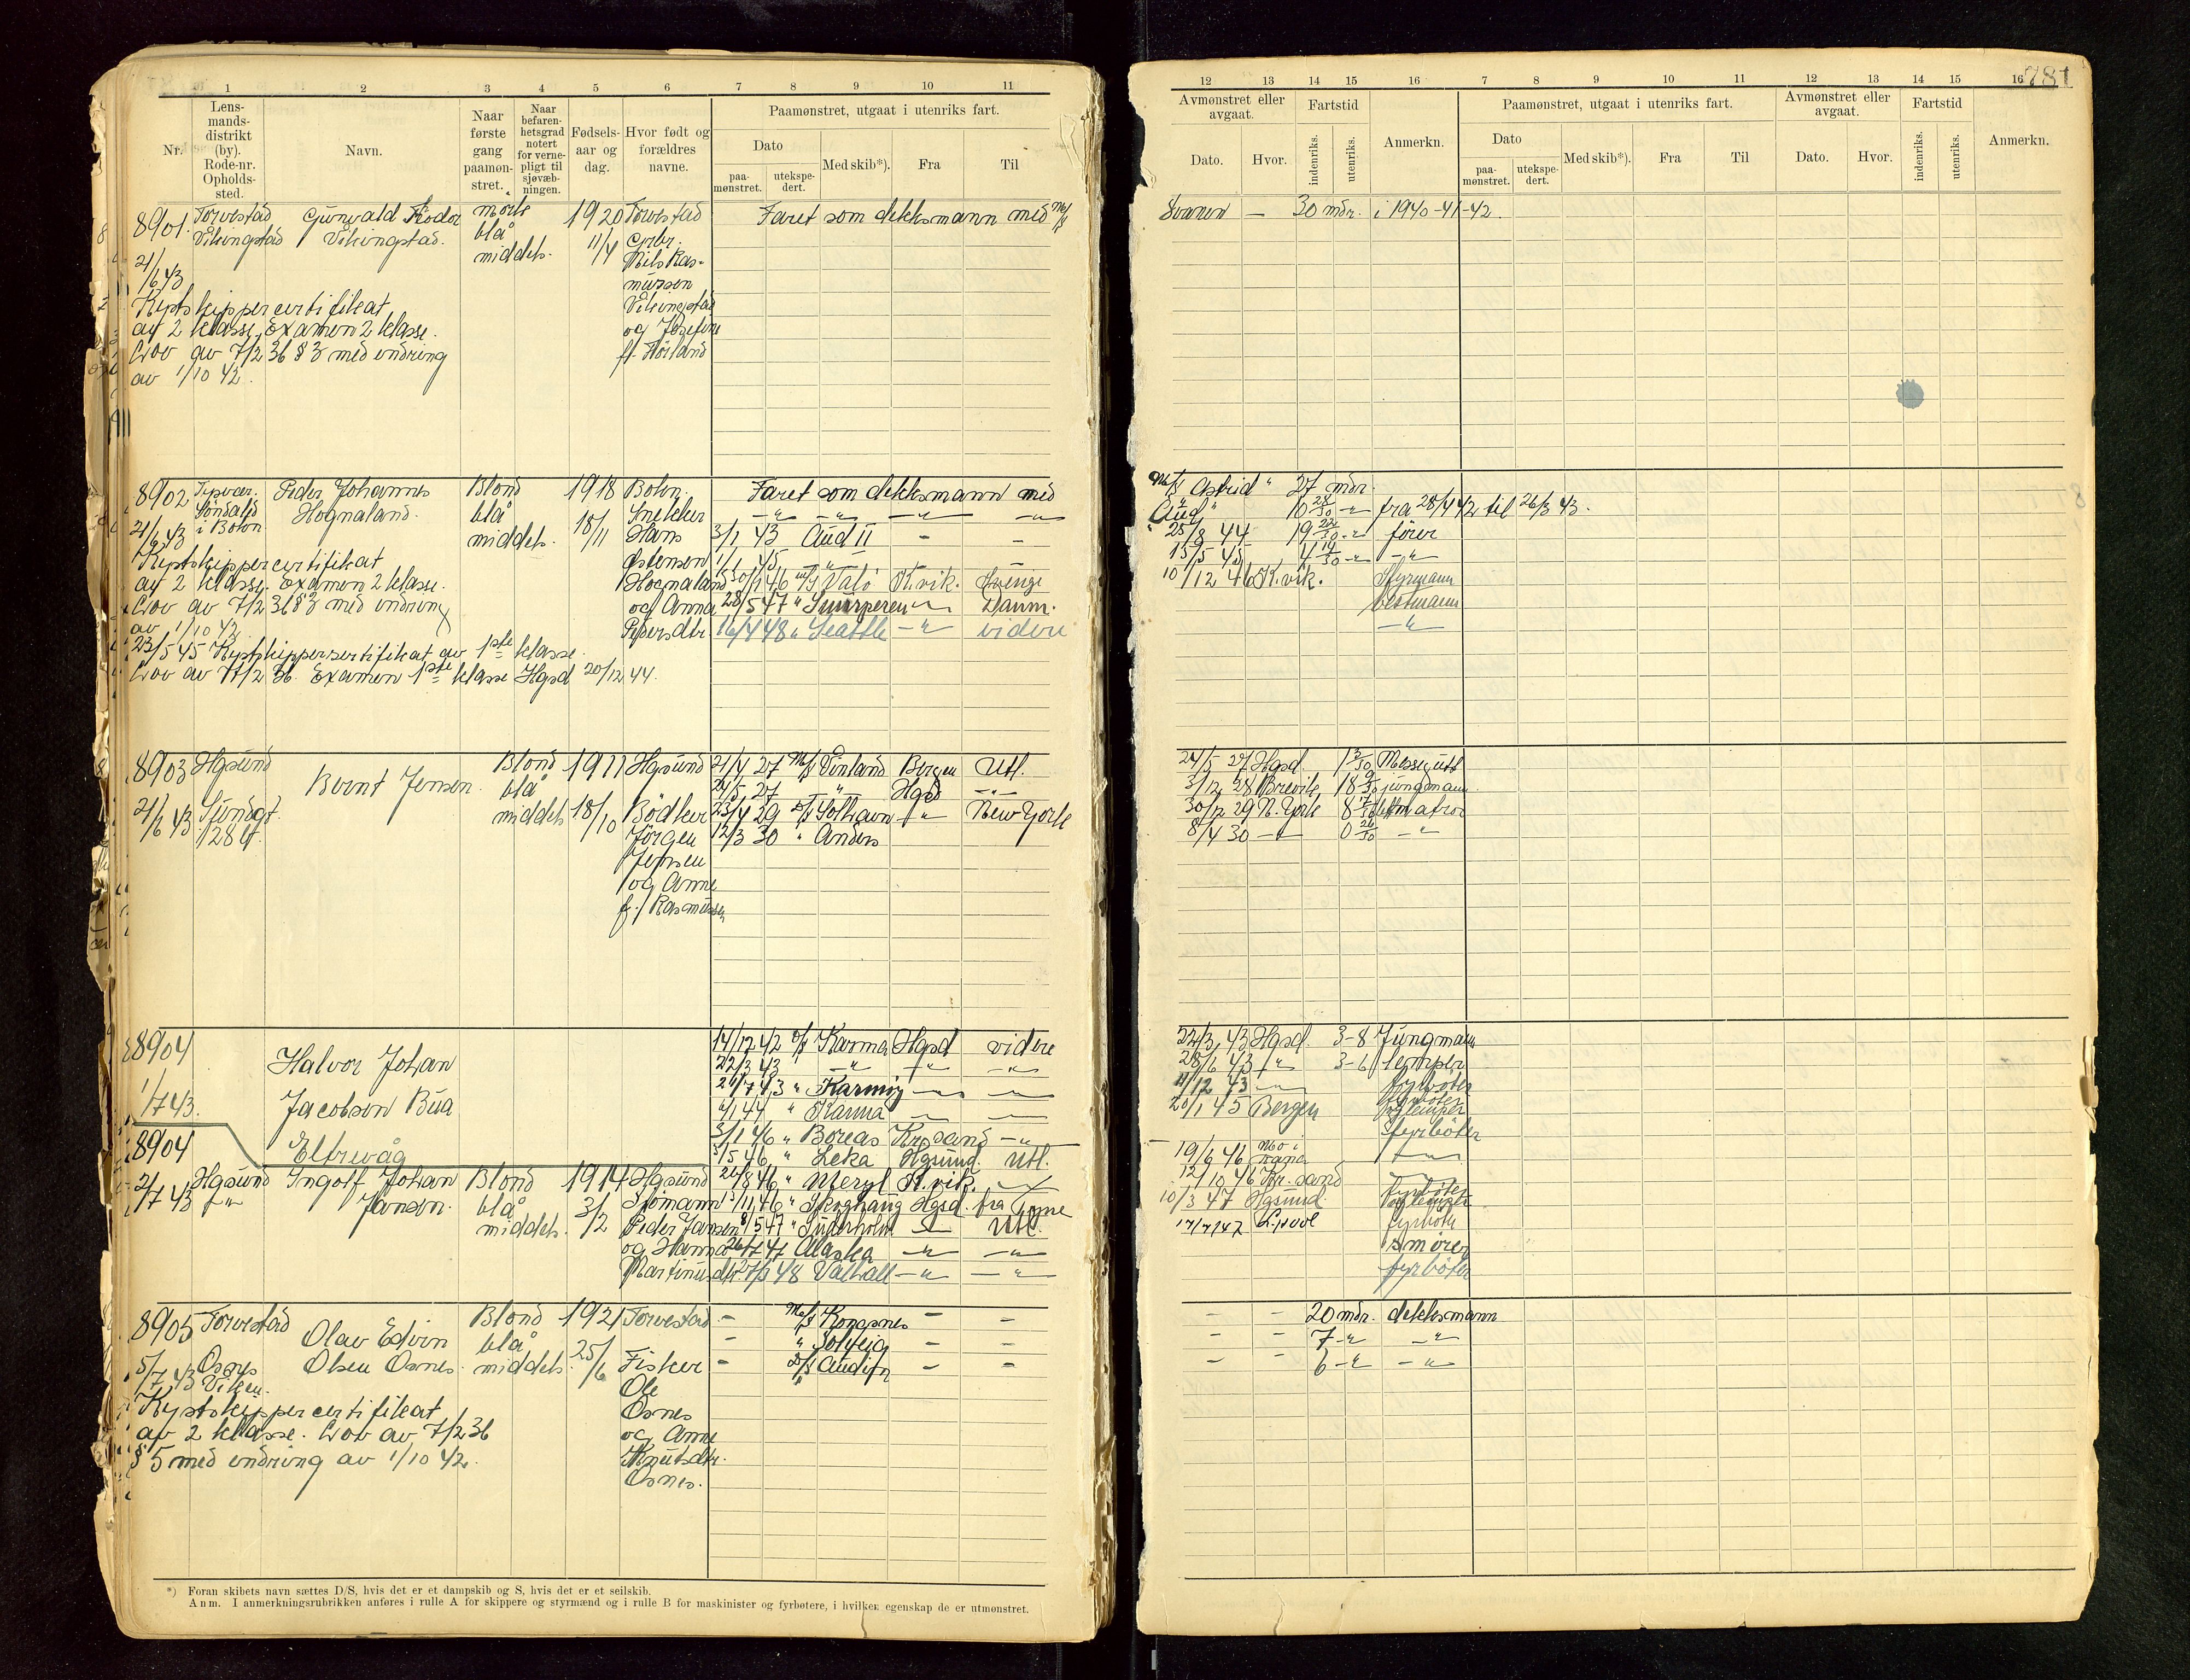 1 2 3 4 5 6 7 8 9 10 11
Nr. Lens-mands-distrikt (by). Rode-nr. Opholds-sted. Navn. Naar første gang paamøn-stret. Naar befaren-hetsgrad notert for verne-pligt til sjøvæb-ningen. Fødsels-aar og dag. Hvor født og forældres navne.
Paamønstret, utgaat i utenriks fart.
Dato Med skib*). Fra Til
paa-mønstret. utekspe-dert.
8901 Torvestad Gunvald Teodor mørk 1920 Torvestad Faret som dekksmann med M/S
Vikingstad Vikingstad. blå 11/4 Grbr.
21/6 43 middels. Nils Ras-
mussen
Kystskippercertifikat Vikingstad
av 2 klasse. Examen 2 klasse. og Josefine
Lov av 7/2 36 § 3 med endring f. Hørland
av 1/10 42.
8902 Peder Johannes Blond 1918 Bokn. Faret som dekksmann med
Hognaland. blå 18/11 Snekker -"- -"- -"- -"-
21/6 43 i Bokn middels. Hans 3/1 43 Aud II - -
Ostensen 1/1 45 " - -
Kystskippercertifikat Hognaland 30/1 46 K.vik. Sverige
av 2 klasse. Examen 2 klasse. og Anna 28/5 47 " -"- Danm.
Lov av 7/2 36 § 3 med endring Pedersdtr. 16/4 48 " Seattle -"- videre
av 1/10 42.
23/5 45 Kystskippersertifikat av 1ste klasse.
Lov av 7/2 36. Examen 1ste klasse Hgsd 20/12 44.
8903 Hgsund Bernt Jensen. Blond 1911 Hgsund 21/4 27 M/S Vinland Bergen Utl.
blå 24/5 27 " Hgsd -"-
21/6 43 Sundgt. middels 18/10 Bødker 23/4 29 D/S Sothavn -"- New York
128 Jørgen 12/3 30 " Anders
Jensen
og Anne
f. Rasmussen
8904 Halvor Johan 14/12 42 D/S Karma Hgsd videre
22/3 43 -"- -"- -"-
1/7 43. Jacobsen Bua 21/7 43 " Karmøy -"- -"-
4/1 44 " Karma -"- -"-
Eltrevåg 3/1 46 " Boreas Kr.sand -"-
8904 5/5 46 " Leka Hgsund. Utl.
Hgsund Ingolf Johan Blond 1914 Hgsund 24/8 46 " Meryl K.vik. -"-
2/7 43 -"- Jansen. blå 3/2 Sjømann 13/11 46 " Skoghaug Hgsd. fra Tyne
middels. Peder Jansen 8/5 47 " Syderholm -"- Utl.
og Hanna 26/7 47 Alaska -"- -"-
Martinusdtr 27/3 48 Valhall -"- -"-
8905 Torvestad Olav Edvin Blond 1921 Torvestad. - M/S Kongsnes - -
Olsen Osnes. blå 25/6 - " Solveig - -
5/7 43 Osnes middels. Fisker - D/S Audun - -
Viken. Ole
Kystskippercertifikat Osnes
av 2 klasse. Lov av 7/2 36 og Anne
§ 5 med endring av 1/10 42. Knutsdtr.
Osnes.
*) Foran skibets navn sættes D/S, hvis det er et dampskib og S, hvis det er et seilskib.
Anm. I anmerkningsrubrikken anføres i rulle A for skippere og styrmænd og i rulle B for maskinister og fyrbøtere, i hvilken egenskap de er utmønstret.
781
12 13 14 15 16 7 8 9 10 11 12 13 14 15 16
Avmønstret eller avgaat. Fartstid Anmerkn. Paamønstret, utgaat i utenriks fart. Avmønstret eller avgaat. Fartstid Anmerkn.
Dato. Hvor. indenriks. utenriks. Dato Med skib*). Fra Til Dato. Hvor. indenriks. utenriks.
paa-mønstret. utekspe-dert.
- 30 mdr. i 1940-41-42.
M/S Astrid " 27 mdr.
"Aud" 10 28/30 -"- fra 28/4 42 til 26/3 43.
25/8 44 19 22/30 -"- fører
15/5 45 4 14/30 -"- -"-
10/12 46 K.vik. Styrmann
bestmann
-"-
24/5 27 Hgsd. 1 3/30 Messegutt
3/12 28 Brevik 18 9/30 jungmann
30/12 29 N. York 8 7/30 lettmatros
8/4 30 -"- 0 26/30 -"-
22/3 43 Hgsd. 3-8 Jungmann
28/6 43 -"- 3-6 lemper
11/12 43 -"- fyrbøter
20/1 45 Bergen fyrbøter
og lemper
fyrbøter
19/6 46 Mo i Rana -"-
12/10 46 Kr.sand -"-
10/3 47 Hgsund. fyrbøter
og lemper
17/7 147 L.pool fyrbøter
smører
fyrbøter
- - 20 mdr. dekksmann
- - 7 -"- -"-
- - 6 -"- -"-